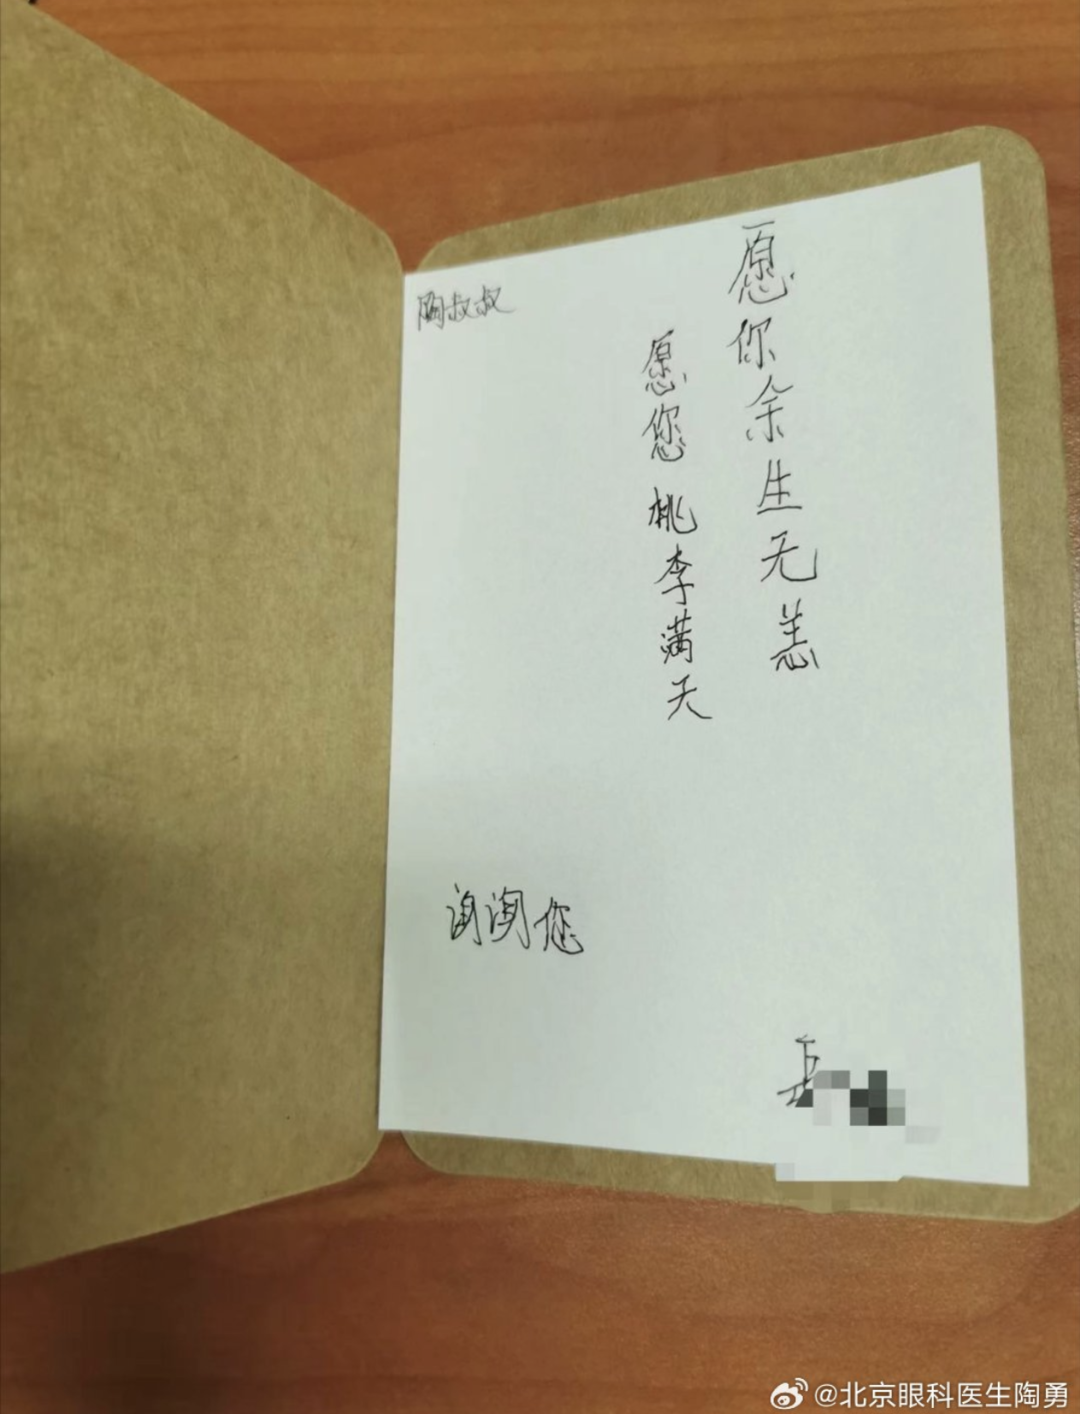 陶叔叔
愿你余生无恙
愿您桃李满天
谢谢您
@北京眼科医生陶勇